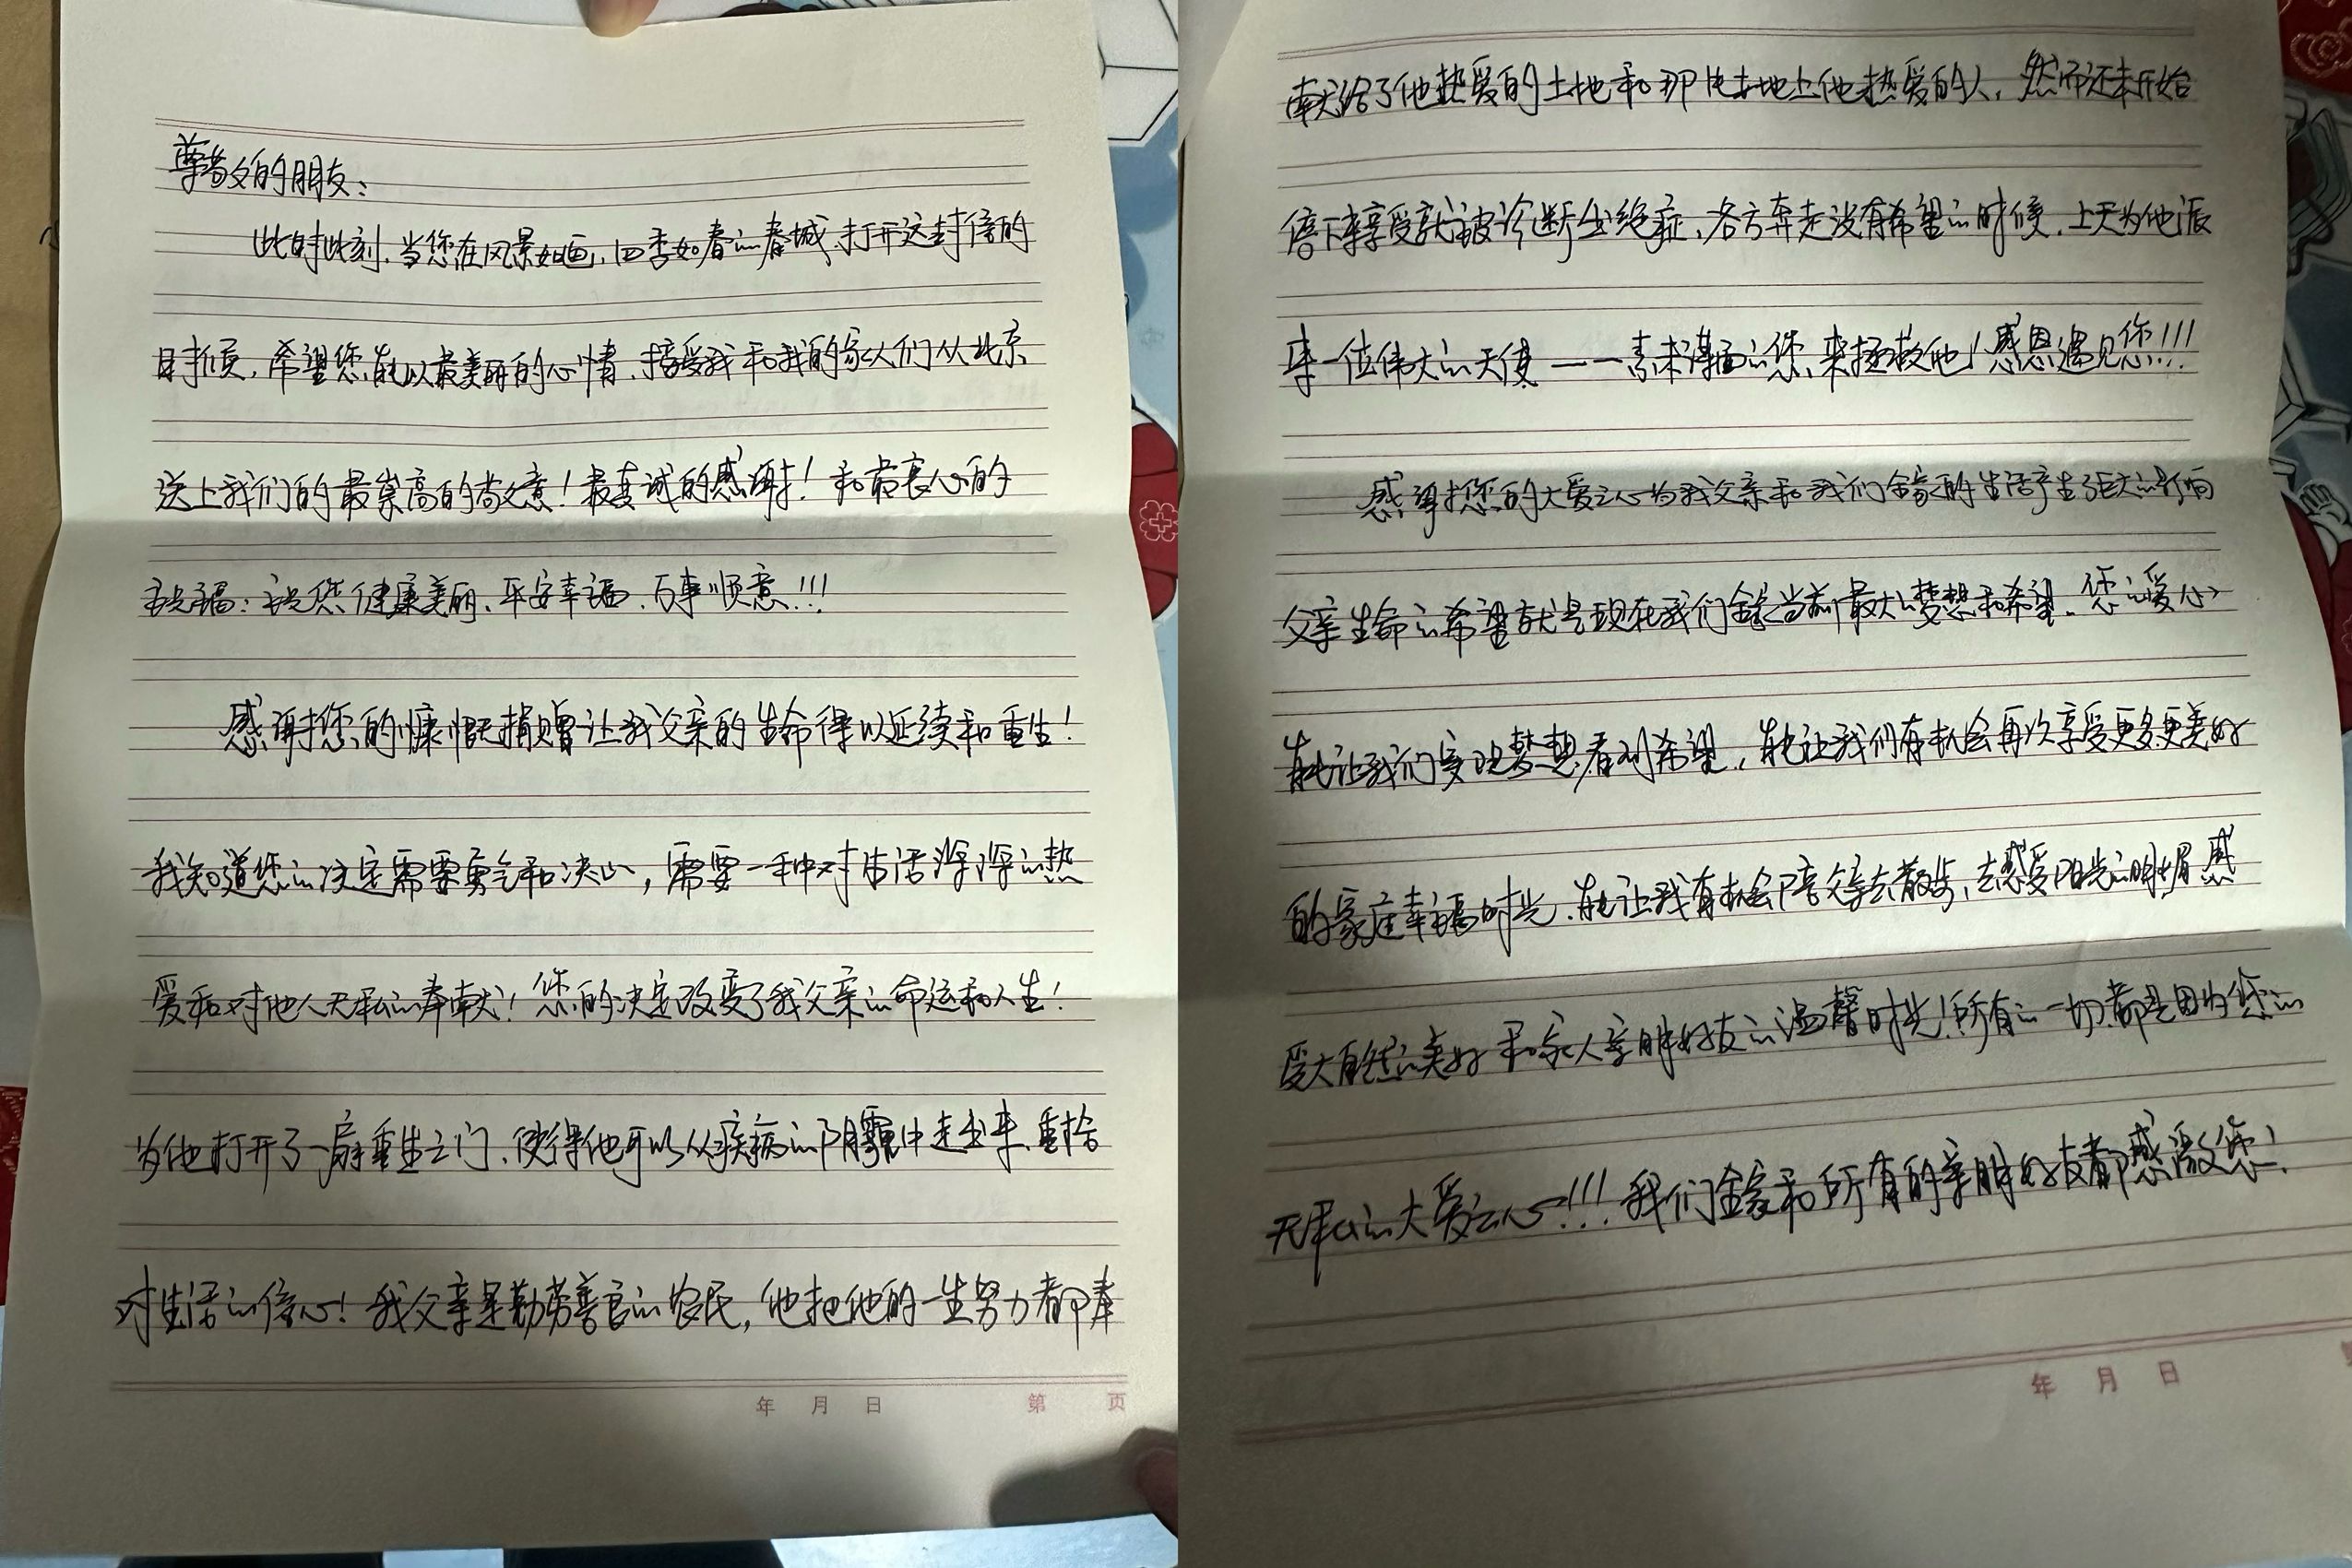 尊敬的朋友：
此时此刻，当您在风景如画、四季如春的春城，打开这封信的
时候，希望您能以最美丽的心情，接受我和我的家人们从北京
送上我们的最崇高的敬意！最真诚的感谢！和最衷心的
祝福：祝您健康美丽、平安幸福、万事顺意！！！
感谢您的慷慨捐赠让我父亲的生命得以延续和重生！
我知道您的决定需要勇气和决心，需要一种对生活深深的热
爱和对他人无私的奉献！您的决定改变了我父亲的命运和人生！
为他打开了一扇重生之门、使得他可以从疾病的阴霾中走出来、重拾
对生活的信心！我父亲是勤劳善良的农民，他把他的一生努力都奉
年 月 日 第 页
献给了他热爱的土地和那片土地上他热爱的人，然而还未开始
停下来享受就被诊断出绝症、各方奔走没有希望的时候，上天为他派
来一位伟大的天使——素未谋面的您、来拯救他！感恩遇见您！！！
感谢您的大爱之心为我父亲和我们全家的生活产生巨大的影响
父亲生命的希望就是现在我们全家当前最大的梦想和希望、您的爱心
能让我们实现梦想看到希望，能让我们有机会再次享受更多更美好
的家庭幸福时光、能让我有机会陪父亲去散步、去感受阳光的明媚感
受大自然的美好和家人亲朋好友的温馨时光！所有的一切都是因为您的
无私的大爱之心！！！我们全家和所有的亲朋好友都感激您！
年 月 日